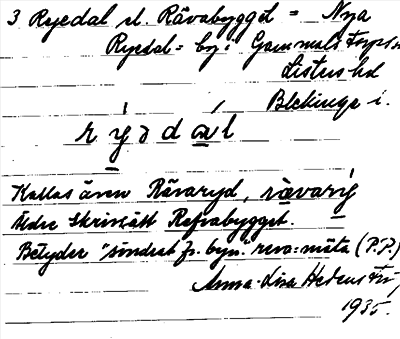 3 Ryedal el. Rävabygget = Nya
Ryedal = by i Gammalstorps sn
Listers hd
Blekinge l.
rýƨdál
Kallas även Rävaryd, rævarýg
Äldre skrivsätt Refvabygget.
Betyder "söndest fr. byn." reva = mäta (P.P.)
Anna-Lisa
1935.